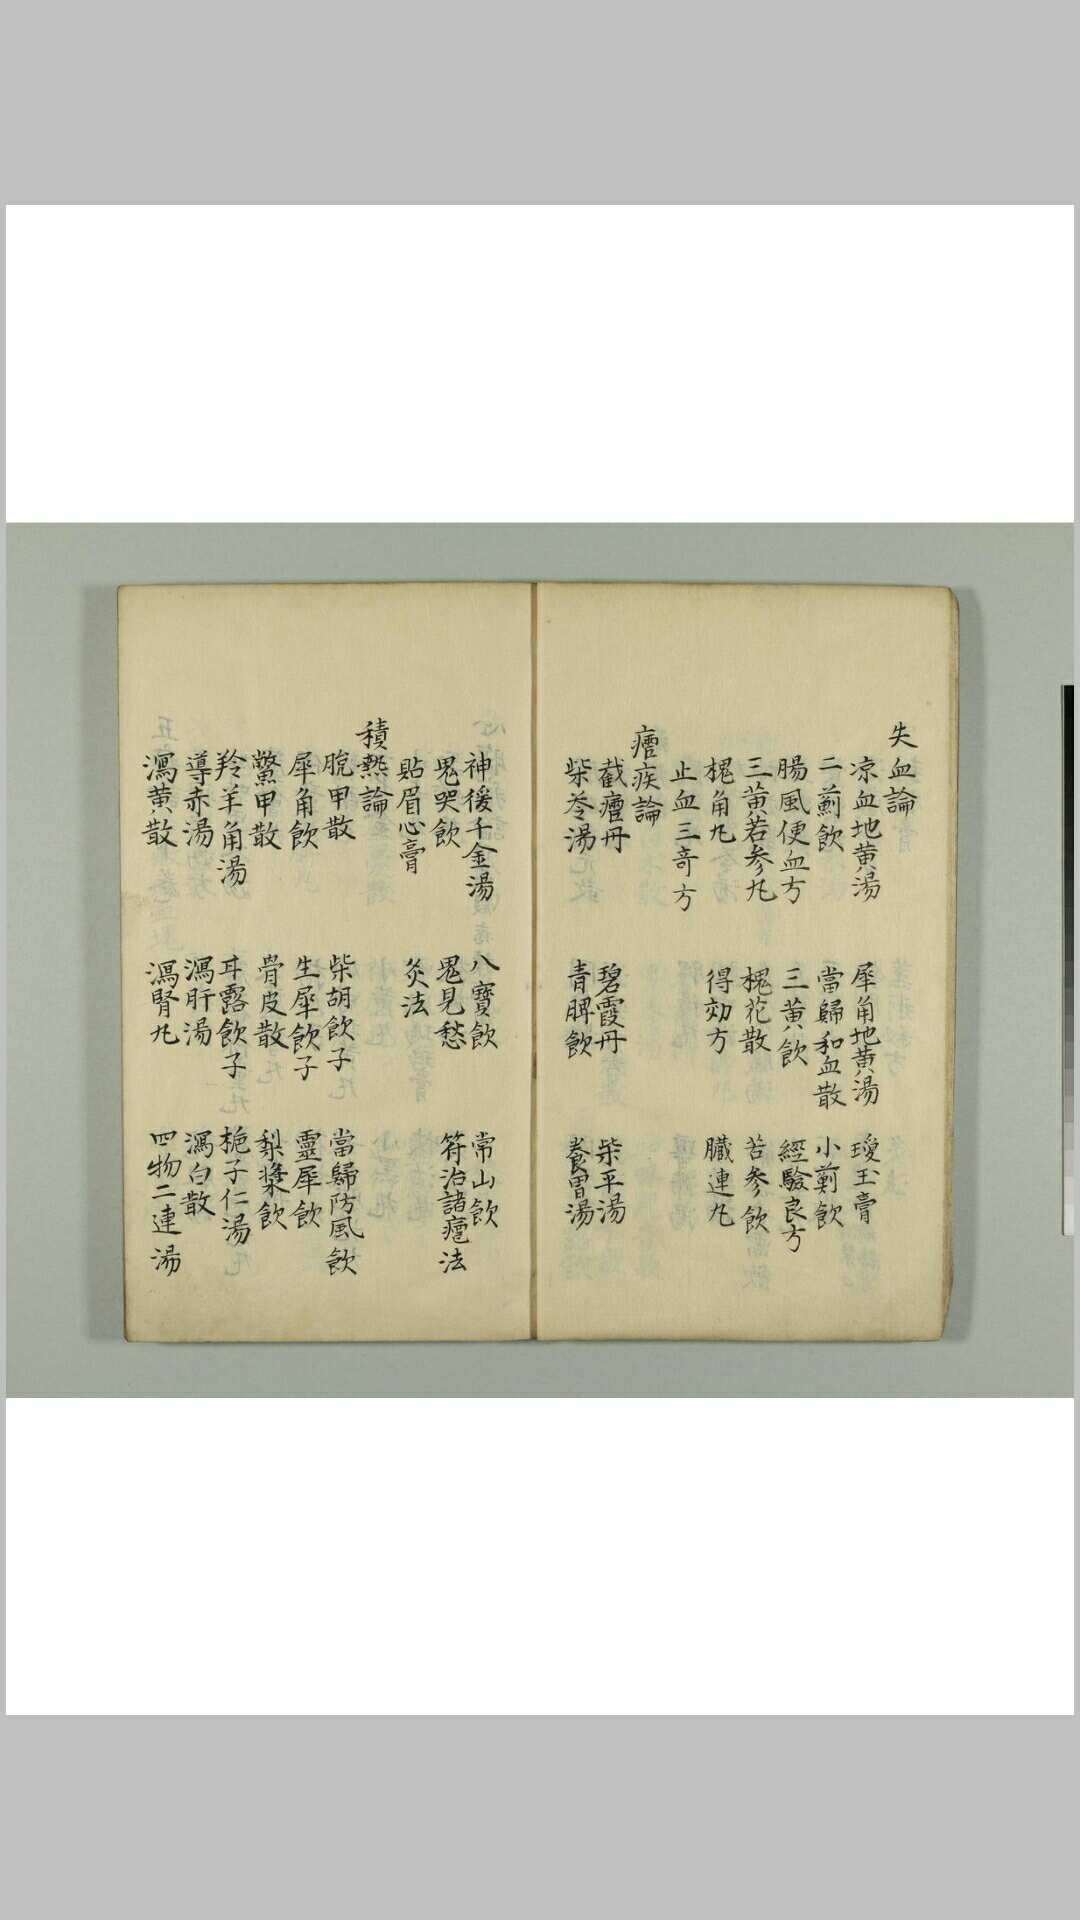 失血論
凉血地黄湯　犀角地黄湯　瓊玉膏
二薊飲　當歸和血散　小薊飲
腸風便血方　三黄飲　經驗良方
三黄若参丸　槐花散　苦参飲
槐角丸　得効方　臟連丸
止血三奇方
瘧疾論
截瘧丹　碧霞丹　柴平湯
柴苓湯　青脾飲　養胃湯
神後千金湯　八寶飲　常山飲
鬼哭飲　鬼見愁　符治諸瘧法
貼眉心膏　灸法
積熱論
脫甲散　柴胡飲子　當歸防風飲
犀角飲　生犀飲子　靈犀飲
鱉甲散　骨皮散　梨漿飲
羚羊角湯　耳露飲子　梔子仁湯
導赤湯　瀉肝湯　瀉白散
瀉黄散　瀉腎丸　四物二連湯